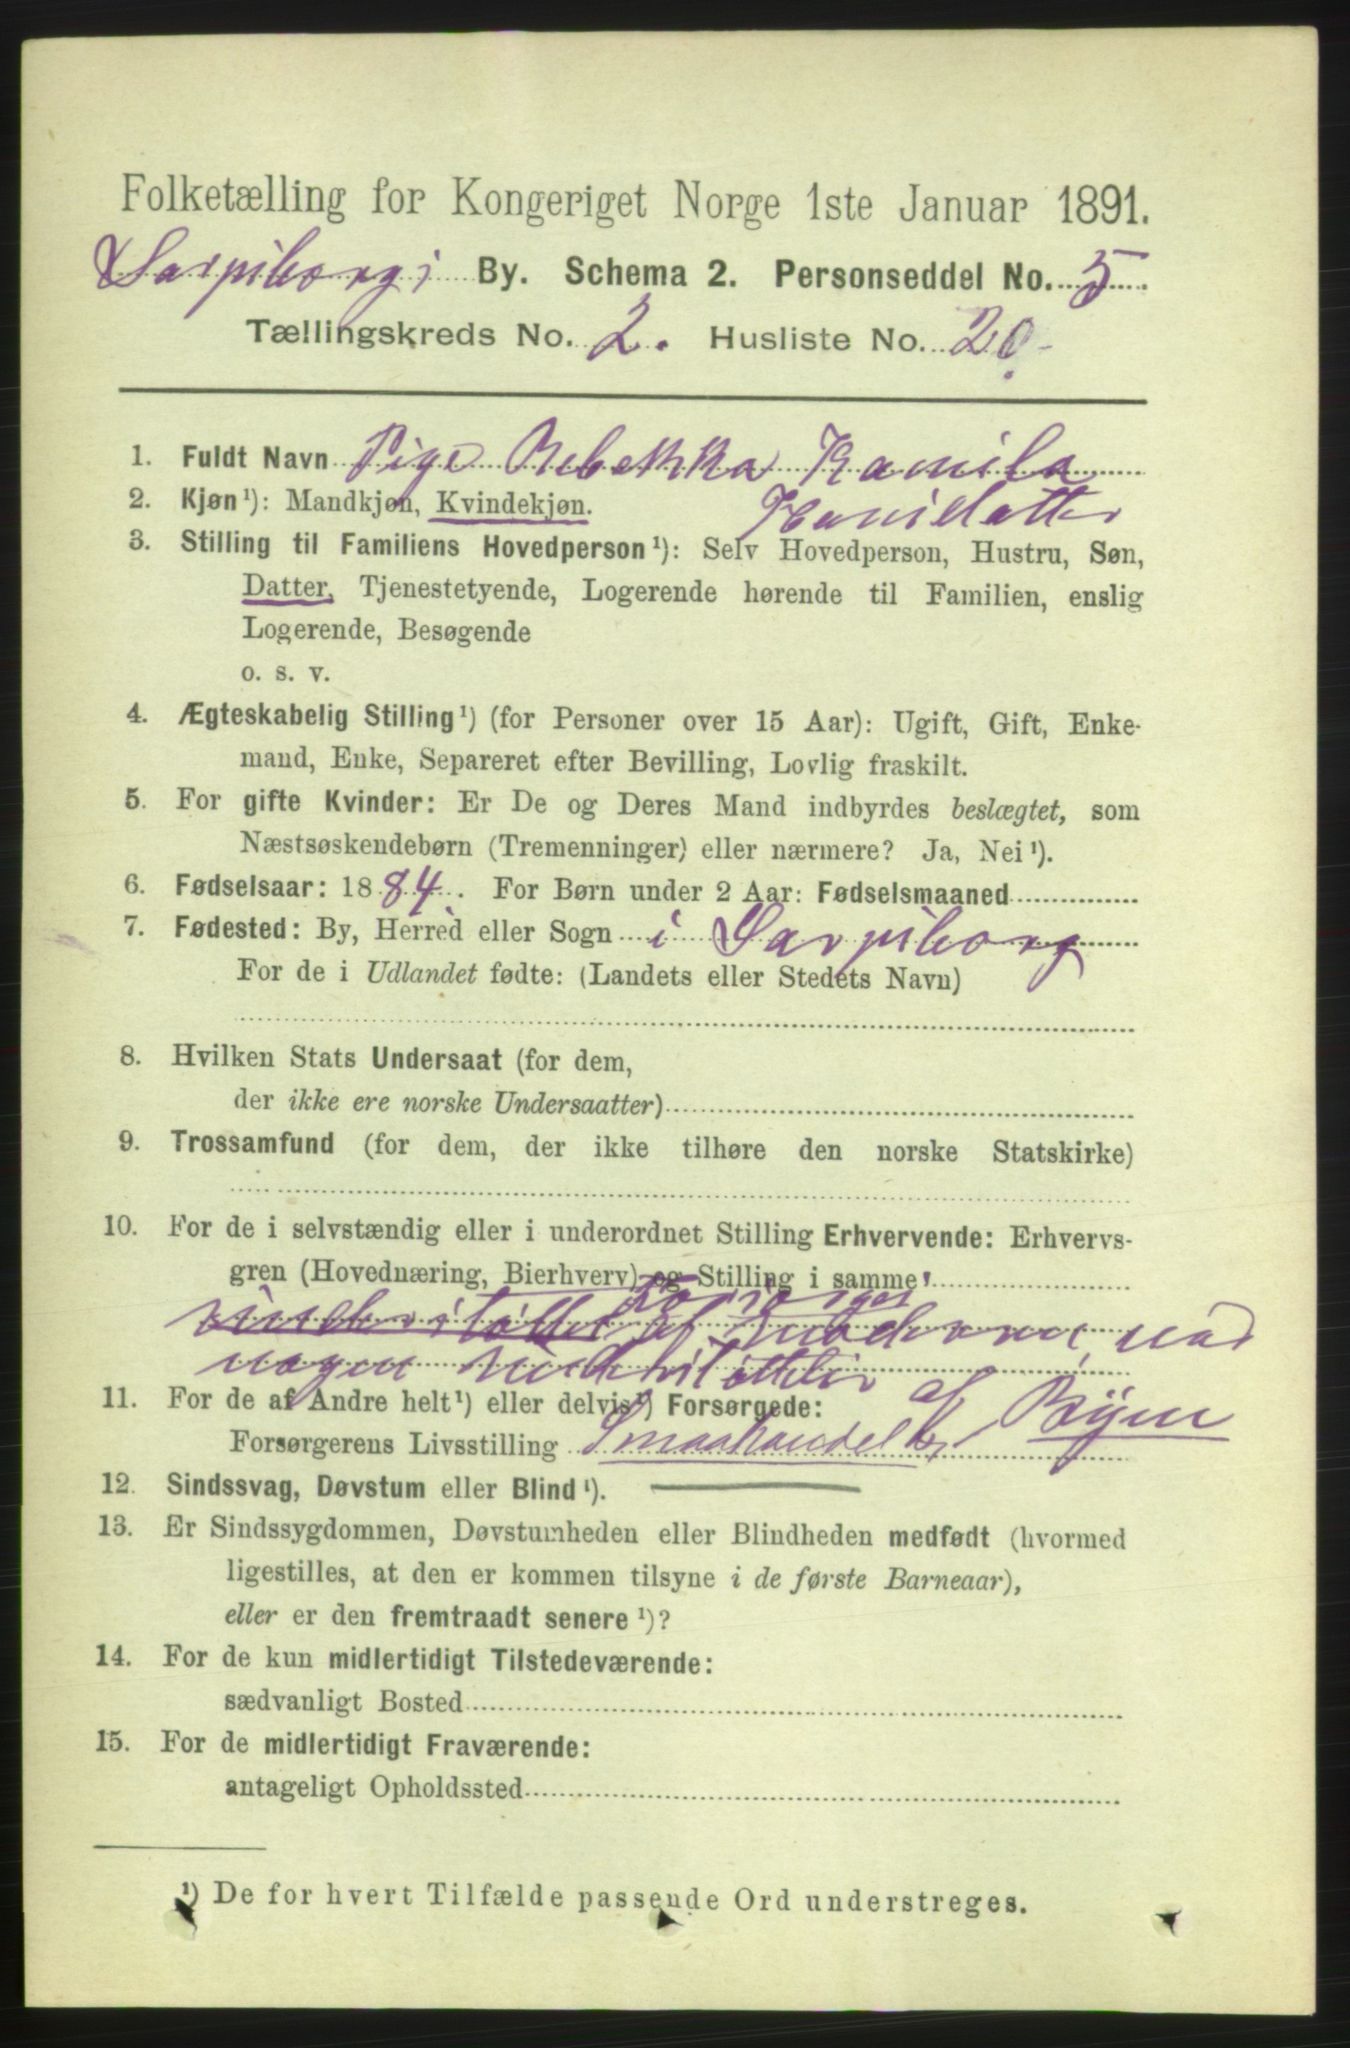 Folketælling for Kongeriget Norge 1ste Januar 1891.
Sarpsborgs By. Schema 2. Personseddel No. 5.
Tællingskreds No. 2. Husliste No. 20.
1. Fuldt Navn Pige Rebekka Kamila
Hansdatter
2. Kjøn¹): Mandkjøn, Kvindekjøn.
3. Stilling til Familiens Hovedperson¹): Selv Hovedperson, Hustru, Søn,
Datter, Tjenestetyende, Logerende hørende til Familien, enslig
Logerende, Besøgende
o. s. v.
4. Ægteskabelig Stilling¹) (for Personer over 15 Aar): Ugift, Gift, Enke-
mand, Enke, Separeret efter Bevilling, Lovlig fraskilt.
5. For gifte Kvinder: Er De og Deres Mand indbyrdes beslægtet, som
Næstsøskendebørn (Tremenninger) eller nærmere? Ja, Nei¹).
6. Fødselsaar: 1884. For Børn under 2 Aar: Fødselsmaaned
7. Fødested: By, Herred eller Sogn i Sarpsborg
For de i Udlandet fødte: (Landets eller Stedets Navn)
8. Hvilken Stats Undersaat (for dem,
der ikke ere norske Undersaatter)
9. Trossamfund (for dem, der ikke tilhøre den norske Statskirke)
10. For de i selvstændig eller i underordnet Stilling Erhvervende: Erhvervs-
gren (Hovednæring, Bierhverv) og Stilling i samme
Forsørges
understøttet af Moderen med
nogen understøttelse af Byen
11. For de af Andre helt¹) eller delvis¹) Forsørgede:
Forsørgerens Livsstilling Smaahandel
12. Sindssvag, Døvstum eller Blind¹).
13. Er Sindssygdommen, Døvstumheden eller Blindheden medfødt (hvormed
ligestilles, at den er kommen tilsyne i de første Barneaar),
eller er den fremtraadt senere¹)?
14. For de kun midlertidigt Tilstedeværende:
sædvanligt Bosted
15. For de midlertidigt Fraværende:
antageligt Opholdssted
¹) De for hvert Tilfælde passende Ord understreges.